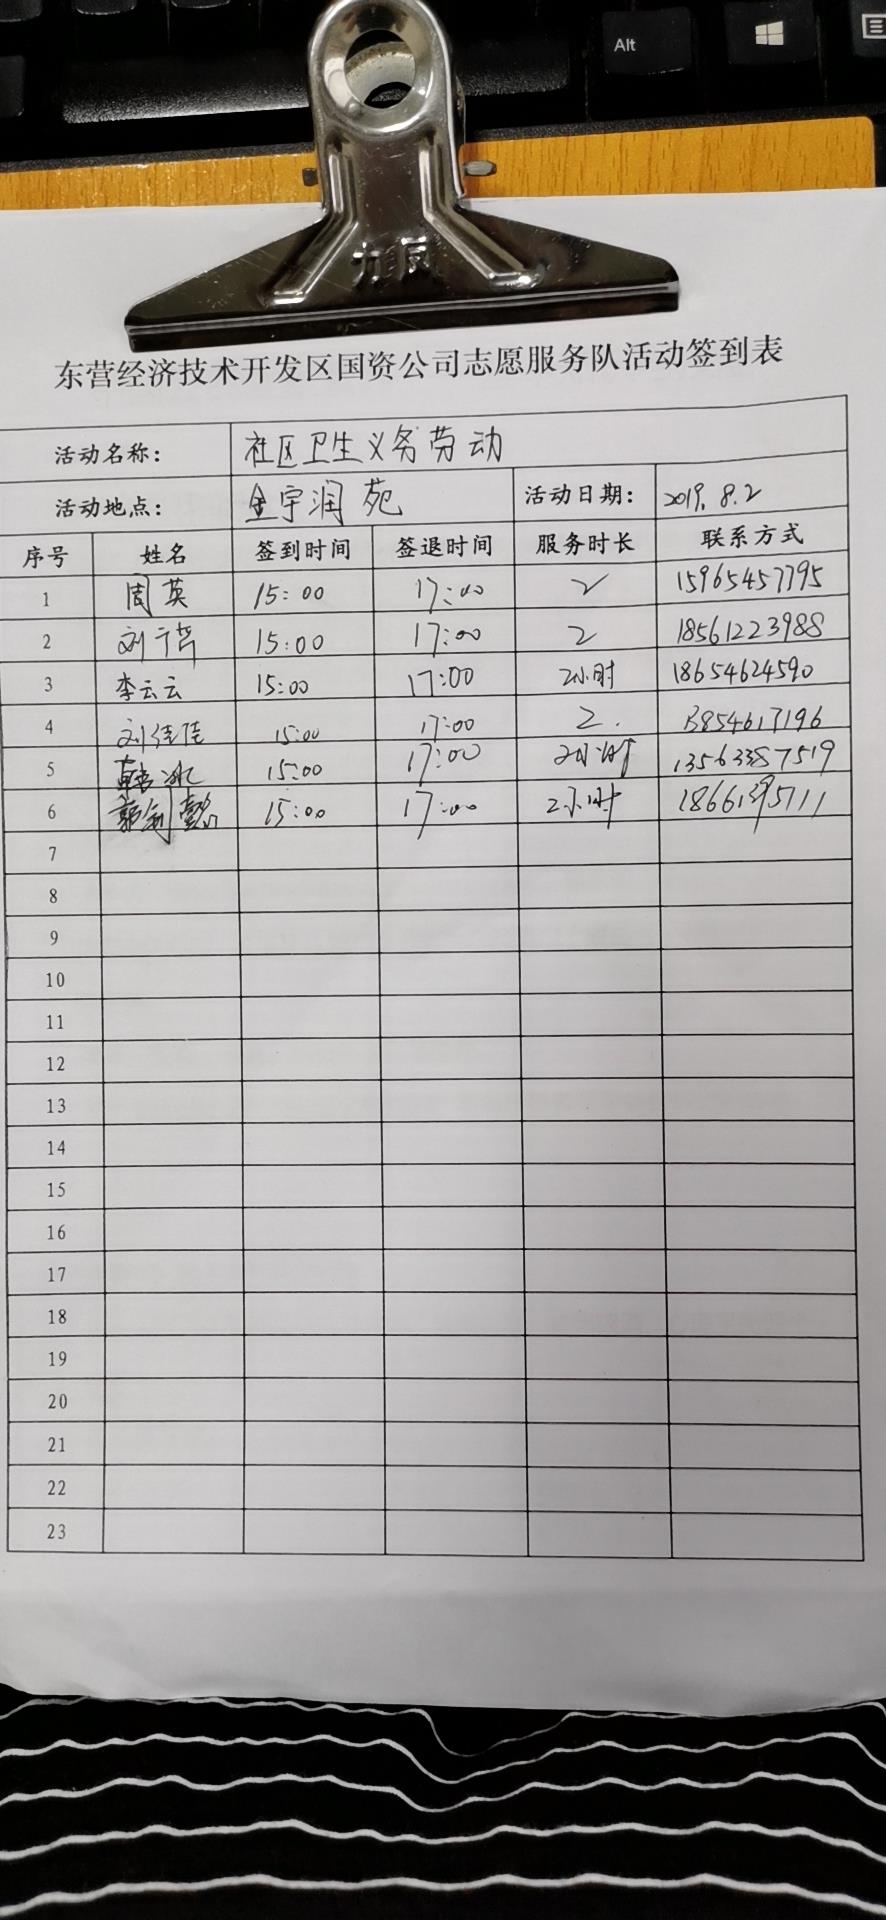 Alt
力风
东营经济技术开发区国资公司志愿服务队活动签到表
活动名称： 社区卫生义务劳动
活动地点： 金宇润苑 活动日期： 2019.8.2
序号 姓名 签到时间 签退时间 服务时长 联系方式
1 周英 15:00 17:00 2 15965457795
2 刘宁 15:00 17:00 2 18561223988
3 李云云 15:00 17:00 2小时 18654624590
4 刘佳佳 15:00 17:00 2. 13854617196
5 韩冰 15:00 17:00 2小时 13563387519
6 郭剑懿 15:00 17:00 2小时 18661395111
7
8
9
10
11
12
13
14
15
16
17
18
19
20
21
22
23